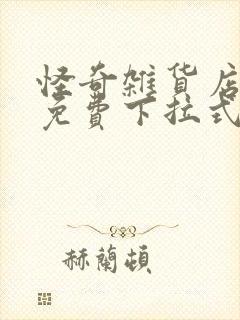 怪奇雑貨店
免費下拉式
赫蘭頓